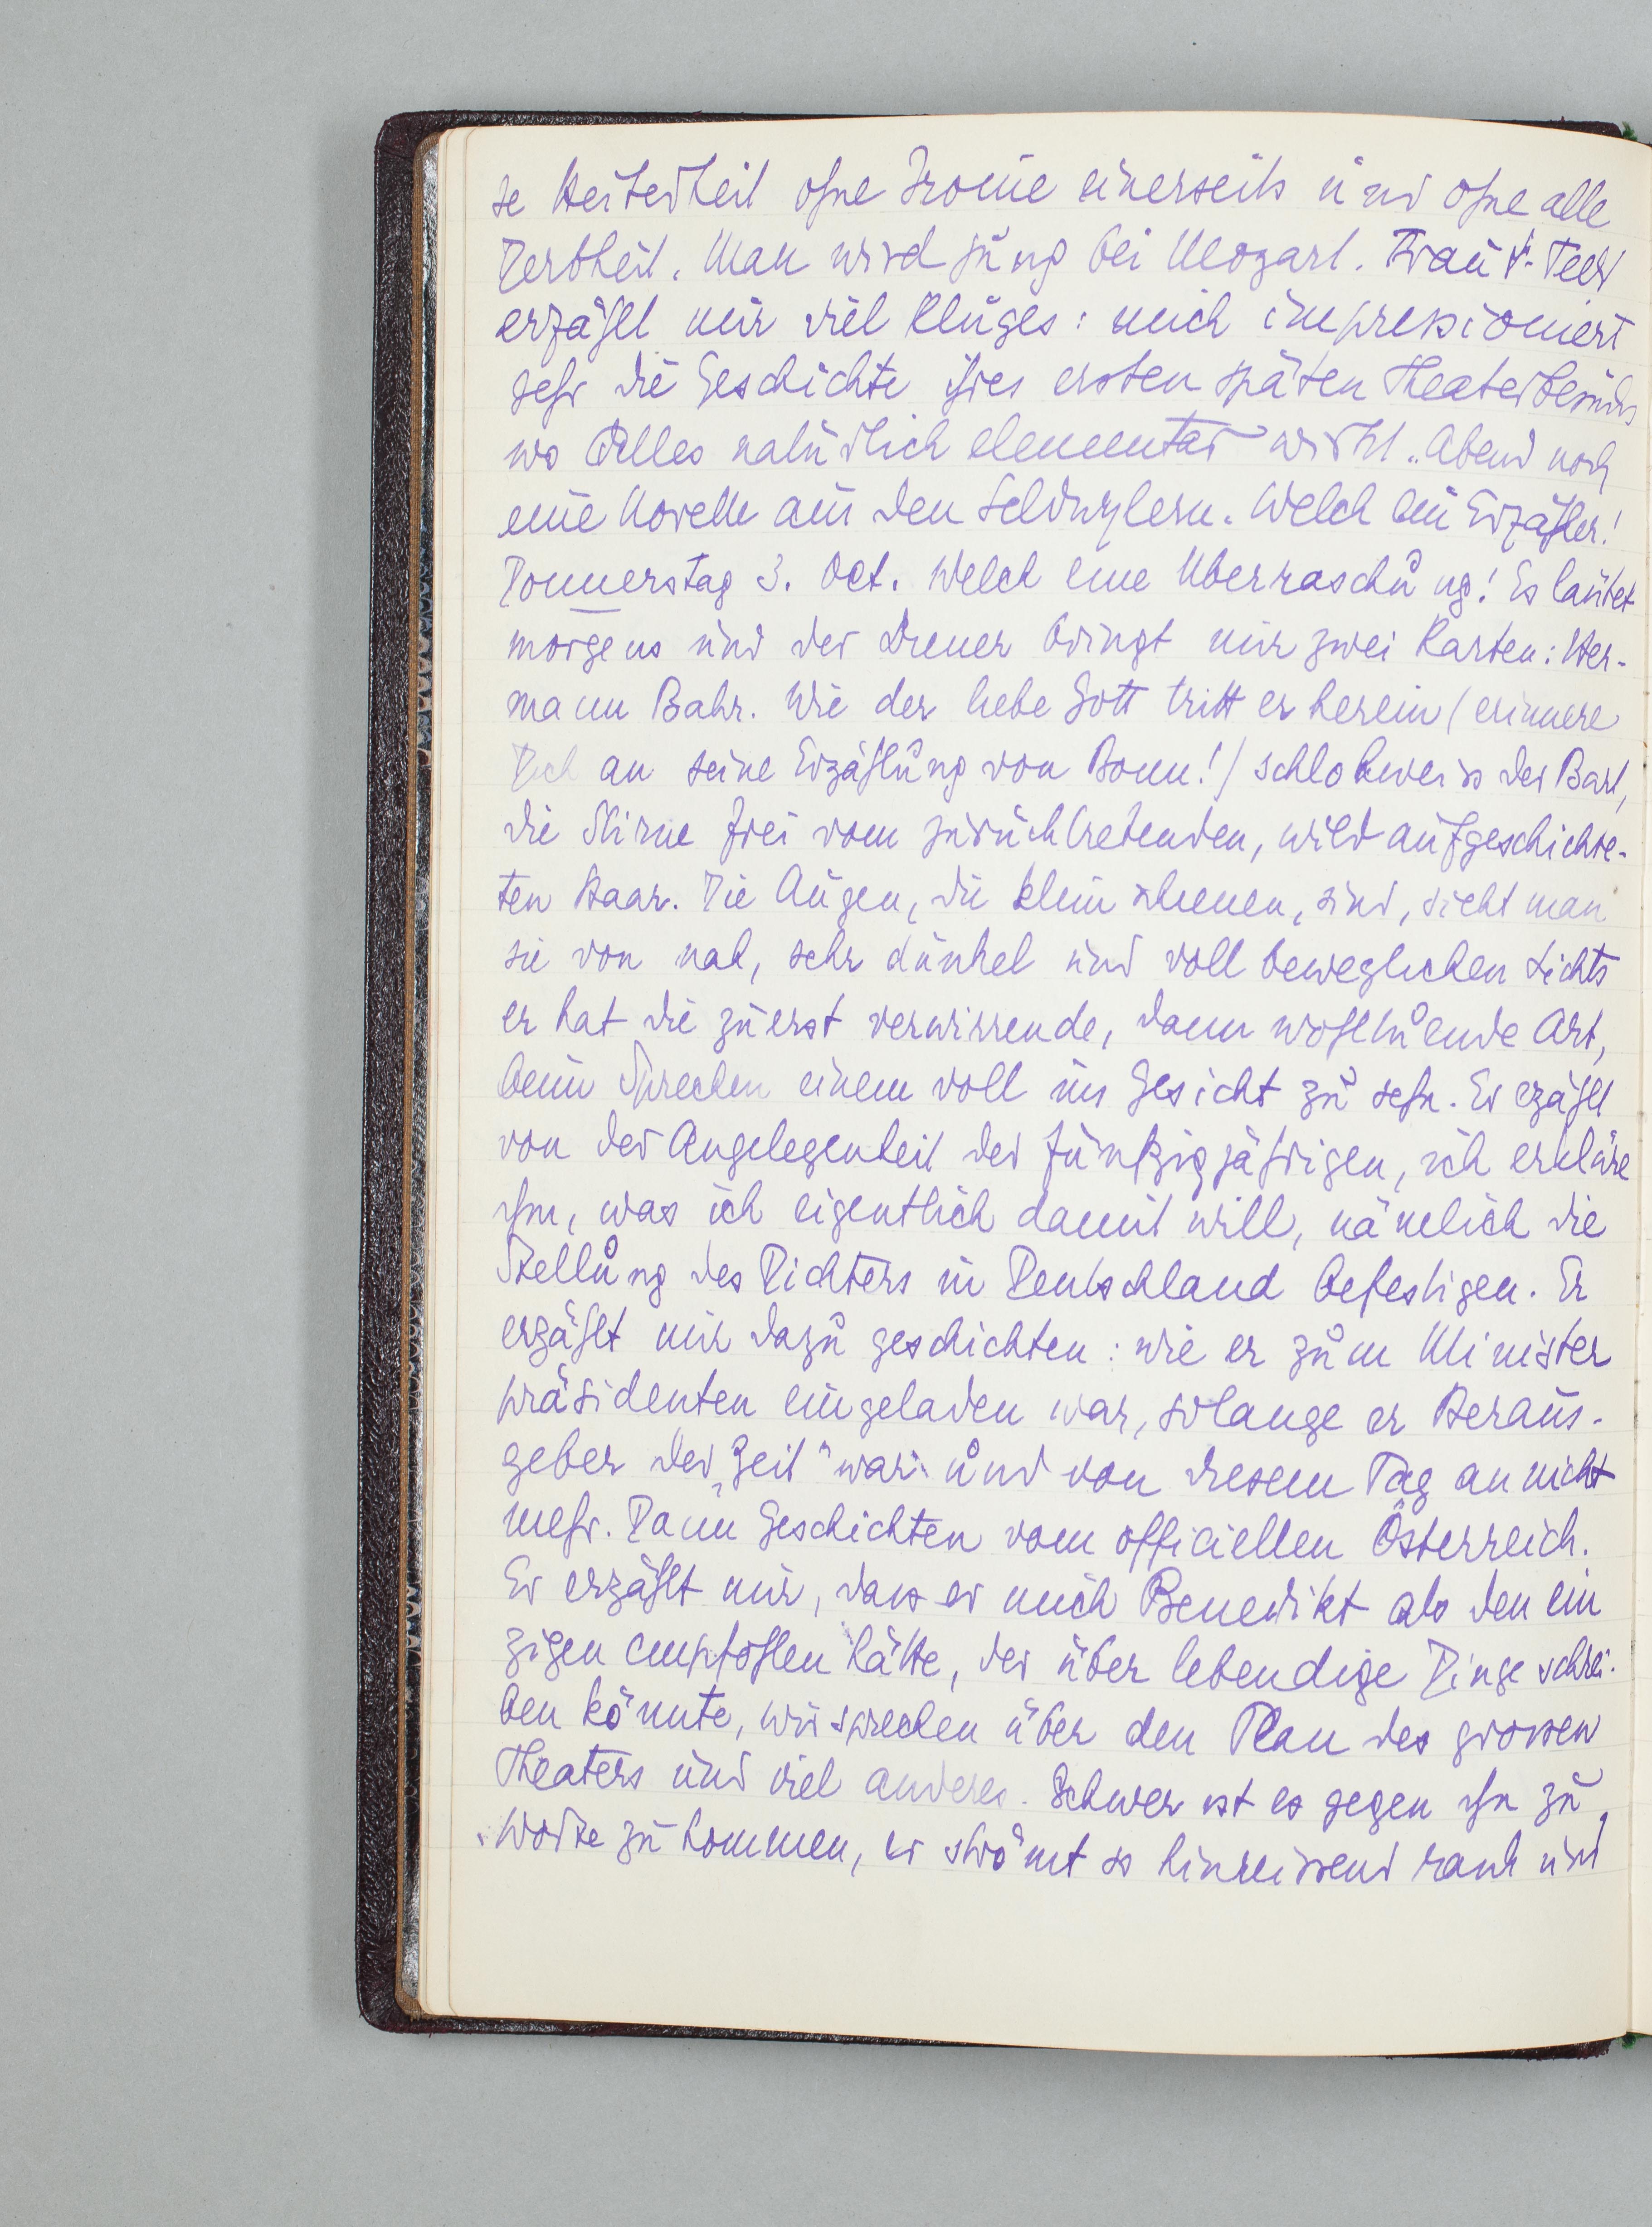 se Heiterkeit ohne Ironie einerseits und ohne alle
Derbheit. Man wird jung bei Mozart. Frau
erzählt mir viel Kluges: mich impressioniert
sehr die Geschichte ihres ersten späten Theaterbesuchs
wo Alles natürlich elementar wirkt. Abend noch
eine Novelle aus den Seldwylern. Welch ein Erzähler!
Donnerstag 3. Oct. Welch eine Uberraschung! Es läutet
morgens und der Diener bringt mir zwei Karten: Her-
mann Bahr. Wie der liebe Gott tritt er herein (erinnere
Dich an seine Erzählung von Bonn!) schlohweiss der Bart,
die Stirne frei vom zurücktretenden, wild aufgeschichte-
ten Haar. Die Augen, die klein scheinen, sind, sieht man
sie von nah, sehr dunkel und voll beweglichen Lichts
er hat die zuerst verwirrende, dann wohltuende Art,
beim Sprechen einem voll ins Gesicht zu sehn. Er erzählt
von der Angelegenheit der fünfzigjährigen, ich erkläre
ihm, was ich eigentlich damit will, nämlich die
Stellung des Dichters in Deutschland befestigen. Er
erzählt mir dazu geschichten: wie er zum Minister
präsidenten eingeladen war, solange er Heraus-
geber der „Zeit" war und von diesem Tag an nicht
mehr. Dann Geschichten vom officiellen Österreich.
Er erzählt mir, dass er mich Benedikt als den ein
zigen empfohlen hätte, der über lebendige Dinge schrei-
ben könnte, wir sprechen über den Plan des grossen
Theaters und viel anderes. Schwer ist es gegen ihn zu
Worte zu kommen, er strömt so hinreissend rasch und